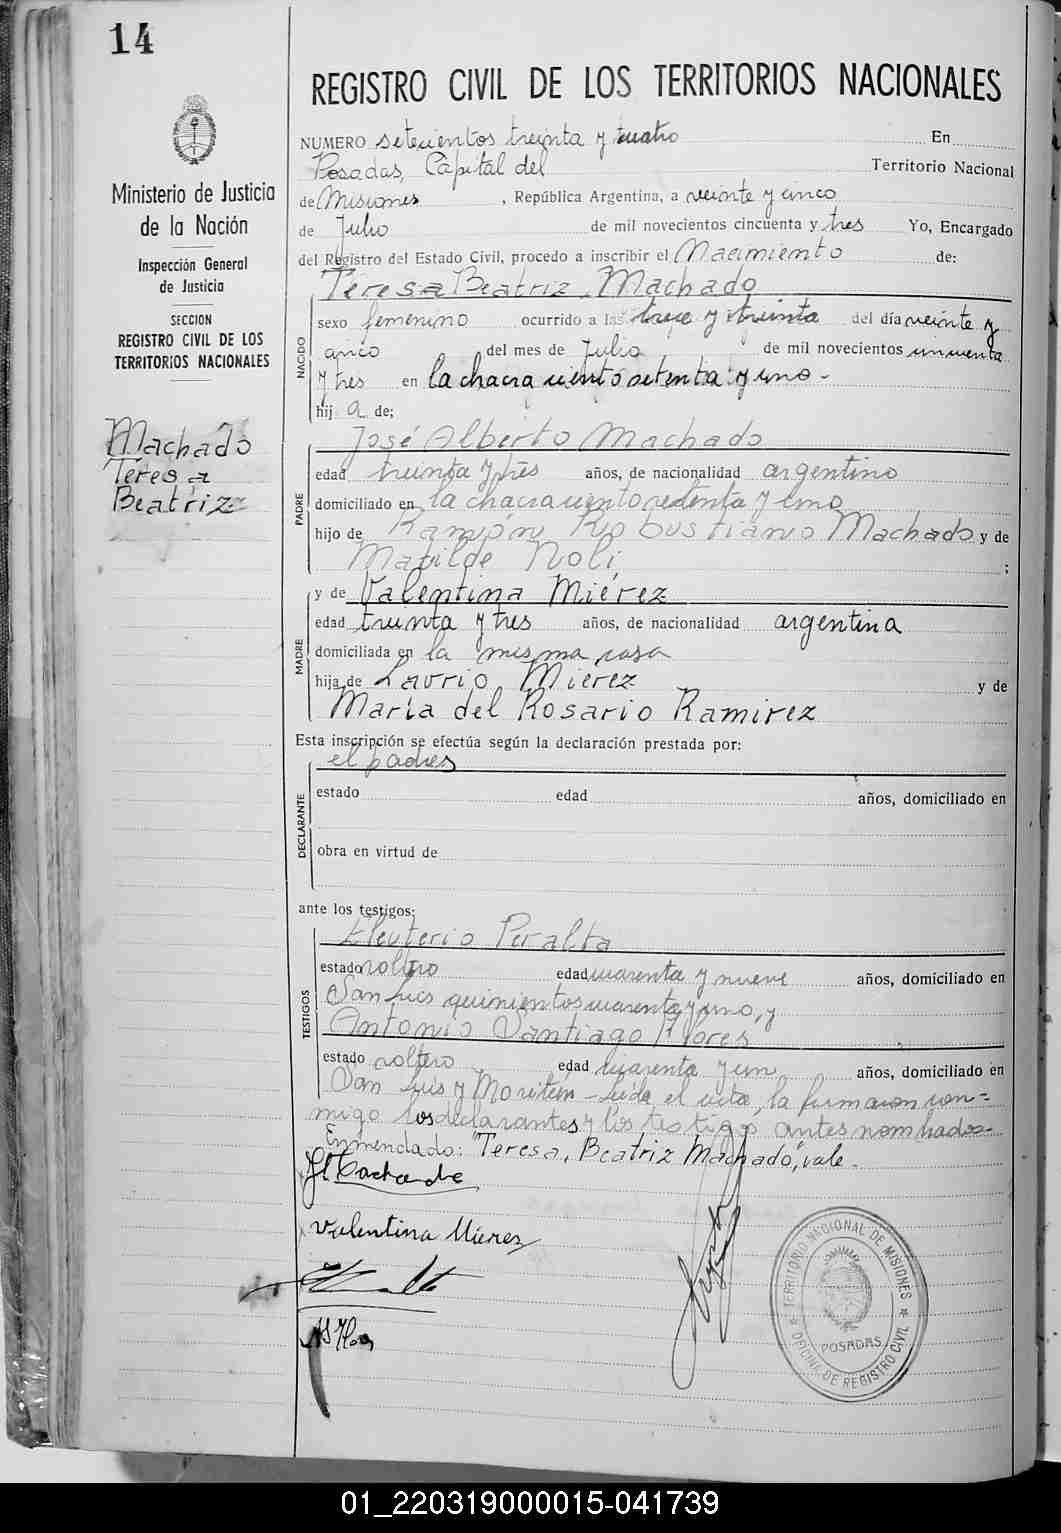 14
REGISTRO CIVIL DE LOS TERRITORIOS NACIONALES
Ministerio de Justicia
de la Nación
Inspección General
de Justicia
SECCION
REGISTRO CIVIL DE LOS
TERRITORIOS NACIONALES
Machado
Teresa
Beatriz
NUMERO setecientos treinta y cuatro En
Posadas, Capital del Territorio Nacional
de Misiones, República Argentina, a veinte y cinco
de Julio de mil novecientos cincuenta y tres Yo, Encargado
del Registro del Estado Civil, procedo a inscribir el Nacimiento de:
Teresa Beatriz Machado
NACIDO
sexo femenino ocurrido a las trece y treinta del día veinte y
cinco del mes de Julio de mil novecientos cincuenta
y tres en la chacra ciento setenta y uno.-
hij a de;
José Alberto Machado
PADRE
edad treinta y tres años, de nacionalidad argentino
domiciliado en la chacra ciento setenta y uno
hijo de Ramón Robustiano Machado y de
Matilde Noli ;
y de Valentina Miérez
MADRE
edad treinta y tres años, de nacionalidad argentina
domiciliada en la misma casa
hija de Laurio Mierez y de
María del Rosario Ramirez
Esta inscripción se efectúa según la declaración prestada por:
el padres
DECLARANTE
estado edad años, domiciliado en
obra en virtud de
ante los testigos:
Eleuterio Peralta
TESTIGOS
estado soltero edad cuarenta y nueve años, domiciliado en
San Luis quinientos cuarenta y uno, y
Antonio Santiago Flores
estado soltero edad cuarenta y un años, domiciliado en
San Luis y Moritán - Leída el acta, la firmaron con=
migo los declarantes y los testigos antes nombrados.-
Enmendado: "Teresa, Beatriz Machado", vale.
Valentina Mierez
TERRITORIO NACIONAL DE MISIONES
POSADAS
OFICINA DE REGISTRO CIVIL
01_220319000015-041739